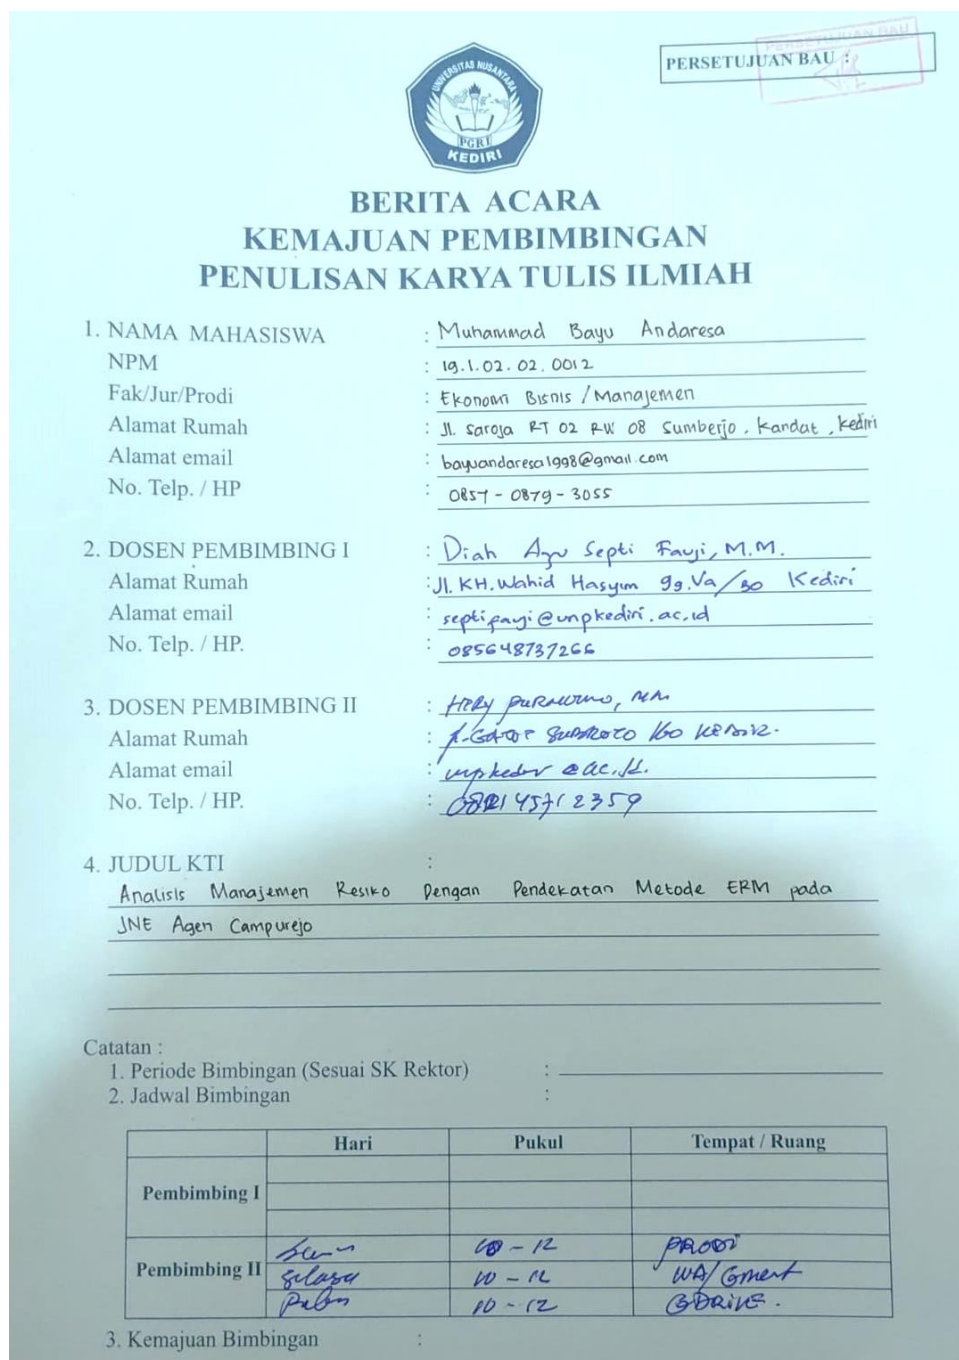 PERSETUJUAN BAU
PERSETUJUAN BAU :
UNIVERSITAS NUSANTARA
PGRI
KEDIRI
BERITA ACARA
KEMAJUAN PEMBIMBINGAN
PENULISAN KARYA TULIS ILMIAH
1. NAMA MAHASISWA : Muhammad Bayu Andaresa
NPM : 19.1.02.02.0012
Fak/Jur/Prodi : Ekonomi Bisnis / Manajemen
Alamat Rumah : Jl. Saroja RT 02 RW 08 Sumberjo, Kandat, Kediri
Alamat email : bayuandaresa1998@gmail.com
No. Telp. / HP : 0857-0879-3055
2. DOSEN PEMBIMBING I : Diah Ayu Septi Fauji, M.M.
Alamat Rumah : Jl. KH. Wahid Hasyim gg. Va/30 Kediri
Alamat email : septifauji@unpkediri.ac.id
No. Telp. / HP. : 085648737266
3. DOSEN PEMBIMBING II : Hery Purnomo, MM
Alamat Rumah : Jl. Gatot Subroto 160 Kediri.
Alamat email : @ac.id.
No. Telp. / HP. :
4. JUDUL KTI :
Analisis Manajemen Resiko Dengan Pendekatan Metode ERM pada
JNE Agen Campurejo
Catatan :
1. Periode Bimbingan (Sesuai SK Rektor) :
2. Jadwal Bimbingan :
Hari Pukul Tempat / Ruang
Pembimbing I
Pembimbing II
Senin 10 - 12 PRODI
Selasa 10 - 12 WA/Gmeet
Rabu 10 - 12 GDRIVE.
3. Kemajuan Bimbingan :